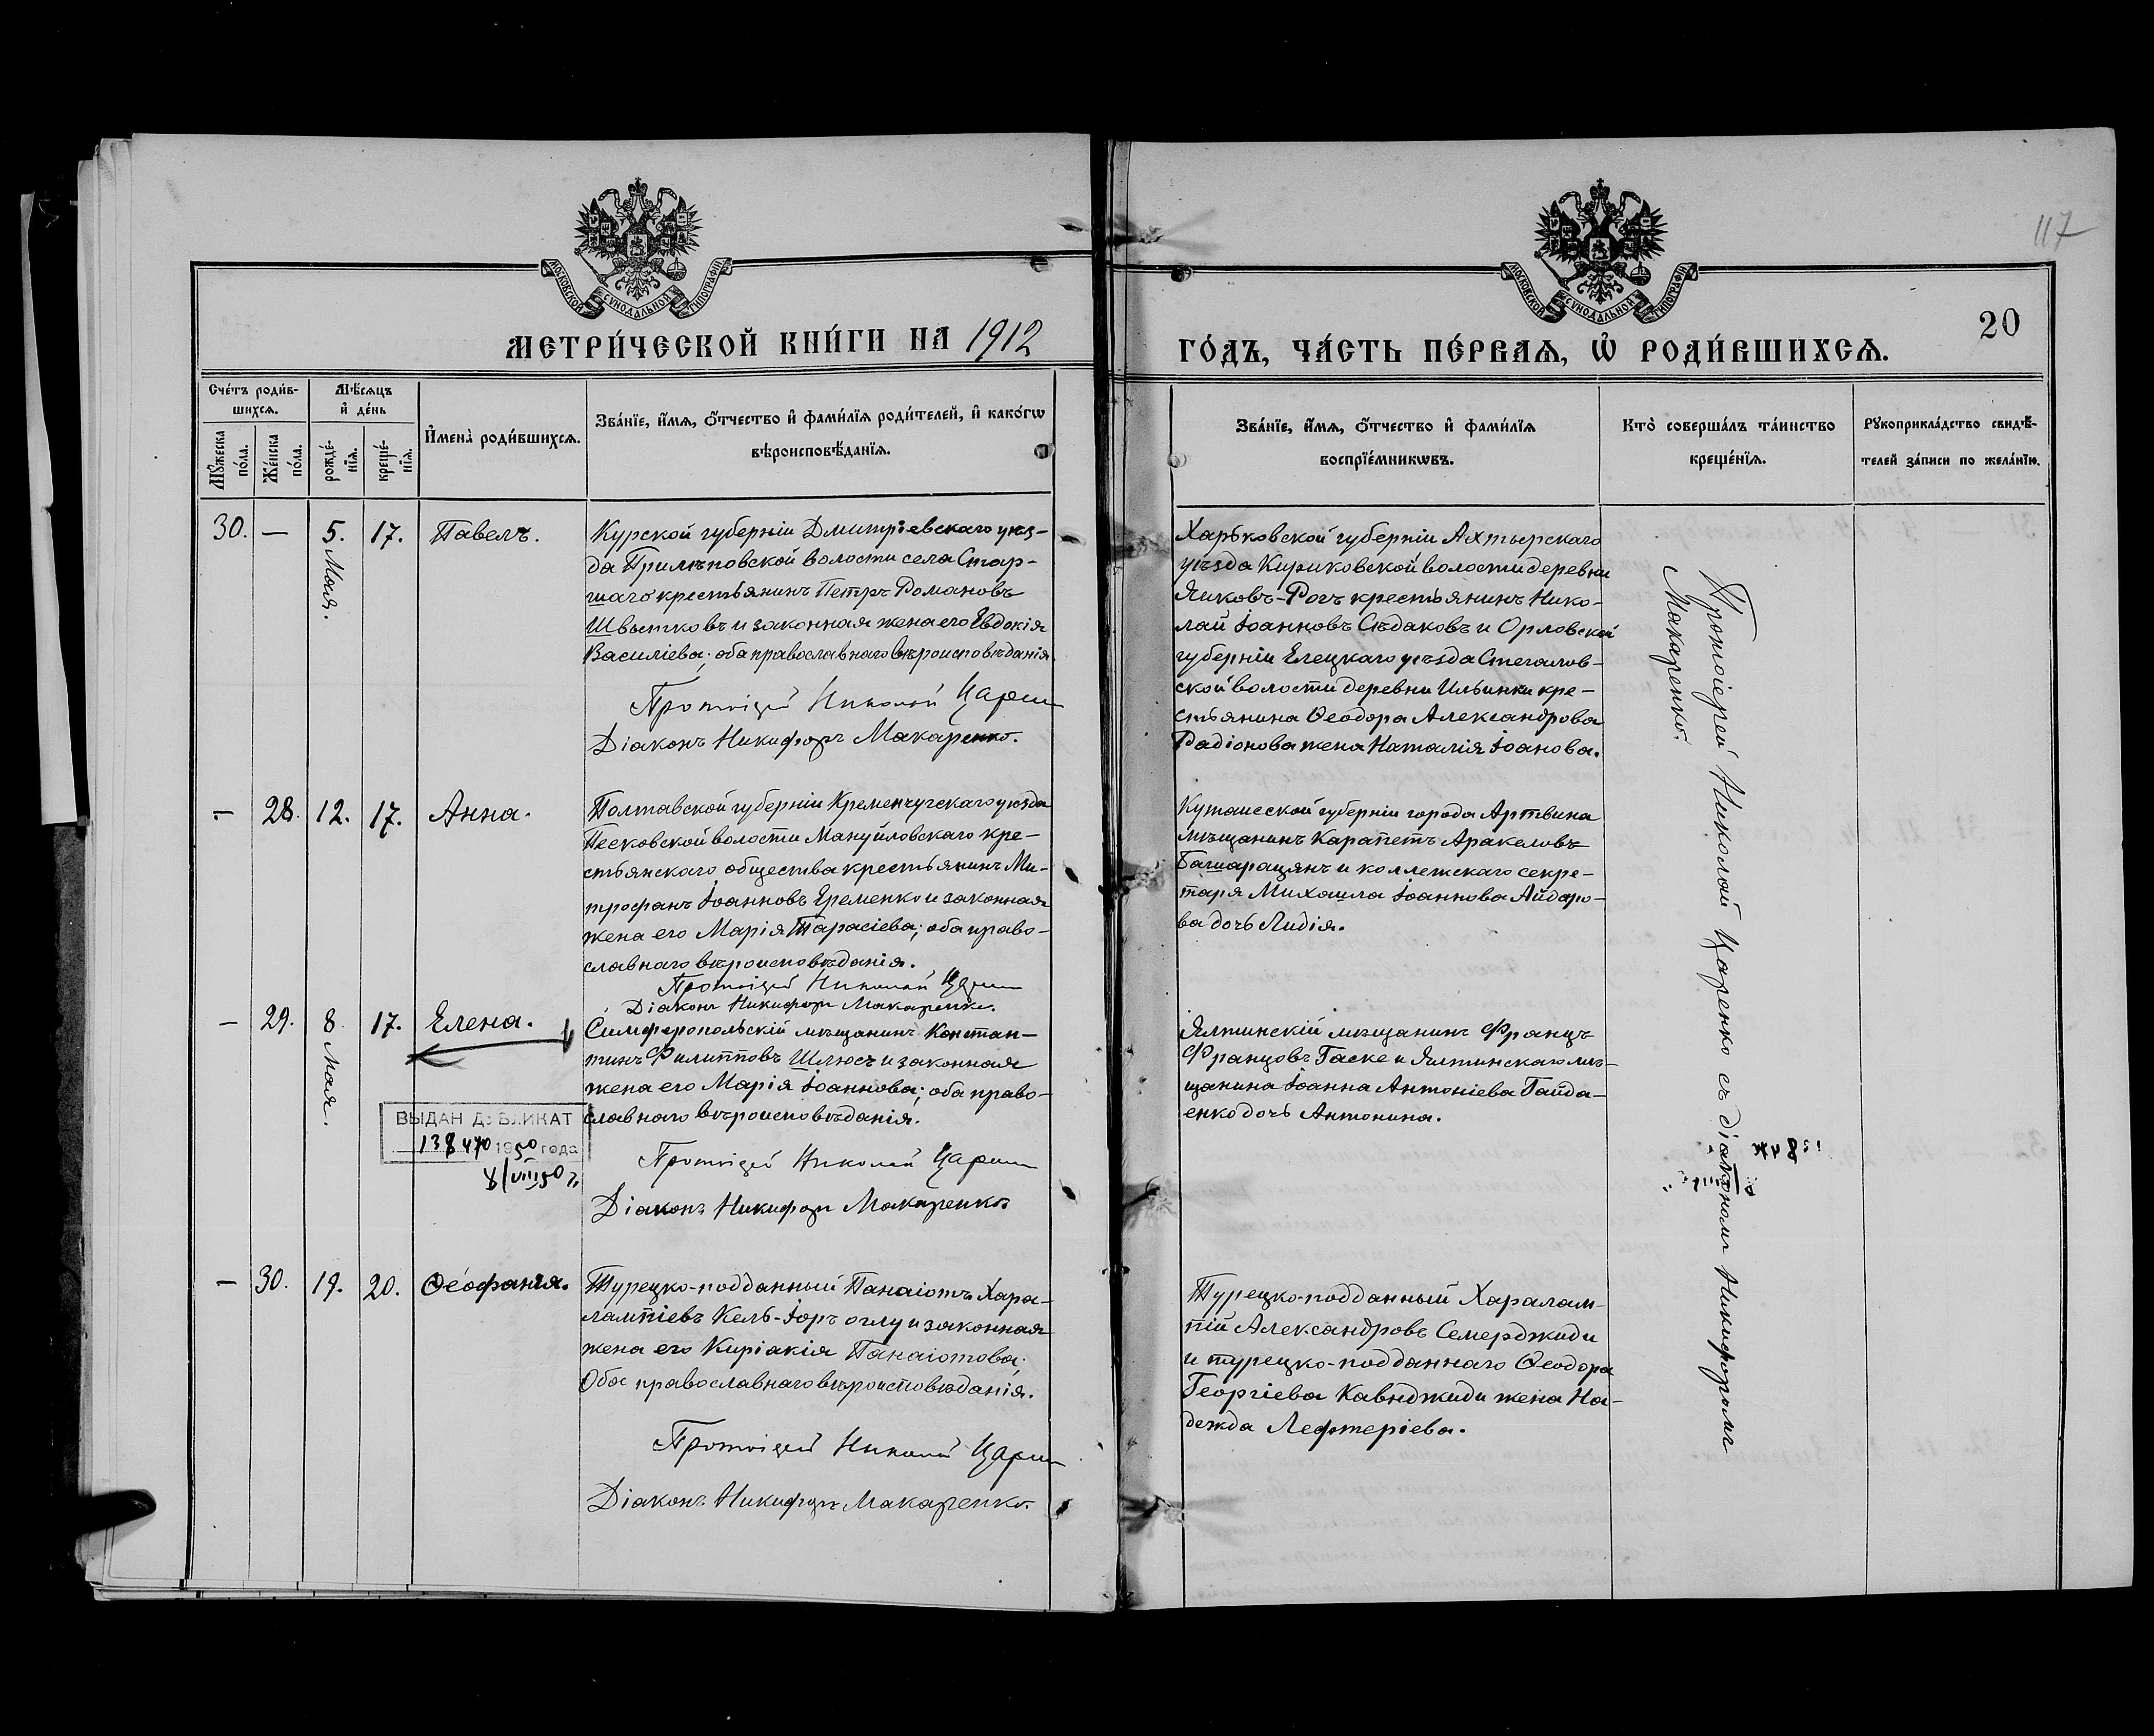 117
МОСКОВСКОЙ СѴНОДАЛЬНОЙ ТИПОГРАФІИ
МОСКОВСКОЙ СѴНОДАЛЬНОЙ ТИПОГРАФІИ
МЕТРИ́ЧЕСКОЙ КНИ́ГИ НА 1912
ГО́ДЪ, ЧА́СТЬ ПЕ́РВАѦ, Ѡ҆ РОДИ́ВШИХСѦ.
20
Сче́тъ роди́в-
шихсѧ.
Мѣ́сѧцъ
и҆ де́нь
Мꙋ́жеска
по́ла.
Же́нска
по́ла.
рожде́-
нїѧ.
креще́-
нїѧ.
И҆мена̀ роди́вшихсѧ.
Зва́нїе, и҆́мѧ, ѻ҆́тчество и҆ фами́лїѧ роди́телей, и҆ како́гѡ
вѣроисповѣ́данїѧ.
Зва́нїе, и҆́мѧ, ѻ҆́тчество и҆ фами́лїѧ
воспрїе́мникѡвъ.
Кто̀ соверша́лъ та́инство
креще́нїѧ.
Рꙋкоприкла́дство свидѣ́-
телей за́писи по жела́нїю.
30. — 5. 17. Павелъ.
Мая.
Курской губерніи Дмитріевскаго уѣз-
да Прилѣповской волости села Стар-
шаго крестьянинъ Петръ Романовъ
Швытковъ и законная жена его Евдокія
Василіева; оба православнаго вѣроисповѣданія
Протоіерей Николай Царен
Діаконъ Никифоръ Макаренко.
Харьковской губерніи Ахтырскаго
уѣзда Кириковской волости деревни
Яковъ-Рогъ крестьянинъ Нико-
лай Іоанновъ Сѣдаковъ и Орловской
губерніи Елецкаго уѣзда Стегалов-
ской волости деревни Ильинки кре-
стьянина Ѳеодора Александрова
Радіонова жена Наталія Іоанова.
Протоіерей Николай Царенко съ діакономъ Никифоромъ
Макаренко.
— 28. 12. 17. Анна.
Полтавской губерніи Кременчугскаго уѣзда
Песковской волости Мануйловскаго кре-
стьянскаго общества крестьянинъ Ми-
трофанъ Іоанновъ Еременко и законная
жена его Марія Тарасіева; оба право-
славнаго вѣроисповѣданія.
Протоіерей Николай Царен
Діаконъ Никифоръ Макаренко.
Кутаисской губерніи города Артвина
мѣщанинъ Карапетъ Аракеловъ
Багшарацянъ и коллежскаго секре-
таря Михаила Іоаннова Айдаро-
ва дочь Лидія.
— 29. 8. 17. Елена.
Мая.
Симферопольскій мѣщанинъ Констан-
тинъ Филипповъ Шлюсъ и законная
жена его Марія Іоаннова; оба право-
славнаго вѣроисповѣданія.
Протоіерей Николай Царен
Діаконъ Никифоръ Макаренко
ВЫДАН ДУБЛИКАТ
138470 1950 года
8/VIII 50 г.
Ялтинскій мѣщанинъ Францъ
Францовъ Гаске и Ялтинскаго мѣ-
щанина Іоанна Антоніева Гайда-
енко дочь Антонина.
— 30. 19. 20. Ѳеофанія.
Турецко-подданный Панаіотъ Хара-
лампіевъ Кель-Іоръ оглу и законная
жена его Киріакія Панаіотова;
Оба православнаго вѣроисповѣданія.
Протоіерей Николай Царен
Діаконъ Никифоръ Макаренко.
Турецко-подданный Харалам-
пій Александровъ Семерджиди
и турецко-подданнаго Ѳеодора
Георгіева Кавнджиди жена На-
дежда Лефтеріева.